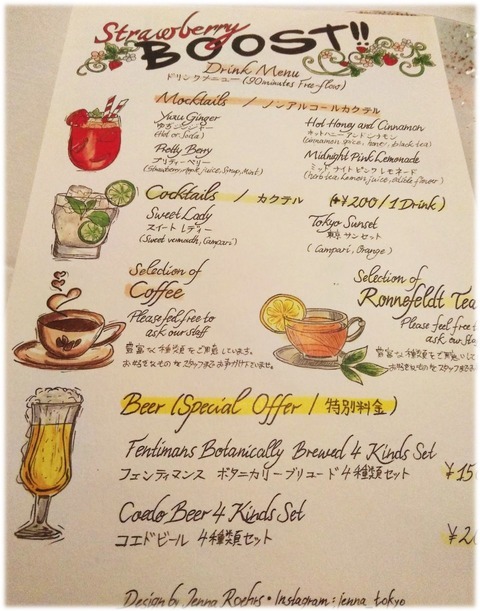 Strawberry
BOOST!!
Drink Menu
ドリンクメニュー (90minutes Free-flow)
Mocktails / ノンアルコールカクテル
Yuzu Ginger
ゆずジンジャー
(Hot or Soda)
Hot Honey and Cinnamon
ホットハニーアンドシナモン
(cinnamon, spice, honey, black tea)
Pretty Berry
プリティーベリー
(Strawberry, Apple juice, Soup, Mint)
Midnight Pink Lemonade
ミッドナイトピンクレモネード
Cocktails / カクテル (+¥200/1Drink)
Sweet Lady
スイートレディー
(Sweet vermouth, Campari)
Tokyo Sunset
東京サンセット
(Campari, Orange)
Selection of
Coffee
Please feel free to
ask our staff
豊富な種類をご用意しています。
Selection of
Ronnefeldt Tea
Please feel free t
ask our staff
豊富な種類をご用意してい
Beer (Special Offer / 特別料金)
Fentimans Botanically Brewed 4 Kinds Set
フェンティマンス ボタニカリーブリュード 4種類セット
¥15
Coedo Beer 4 Kinds Set
コエドビール 4種類セット
Design by Jenna Roehrs • Instagram: jenna_tokyo